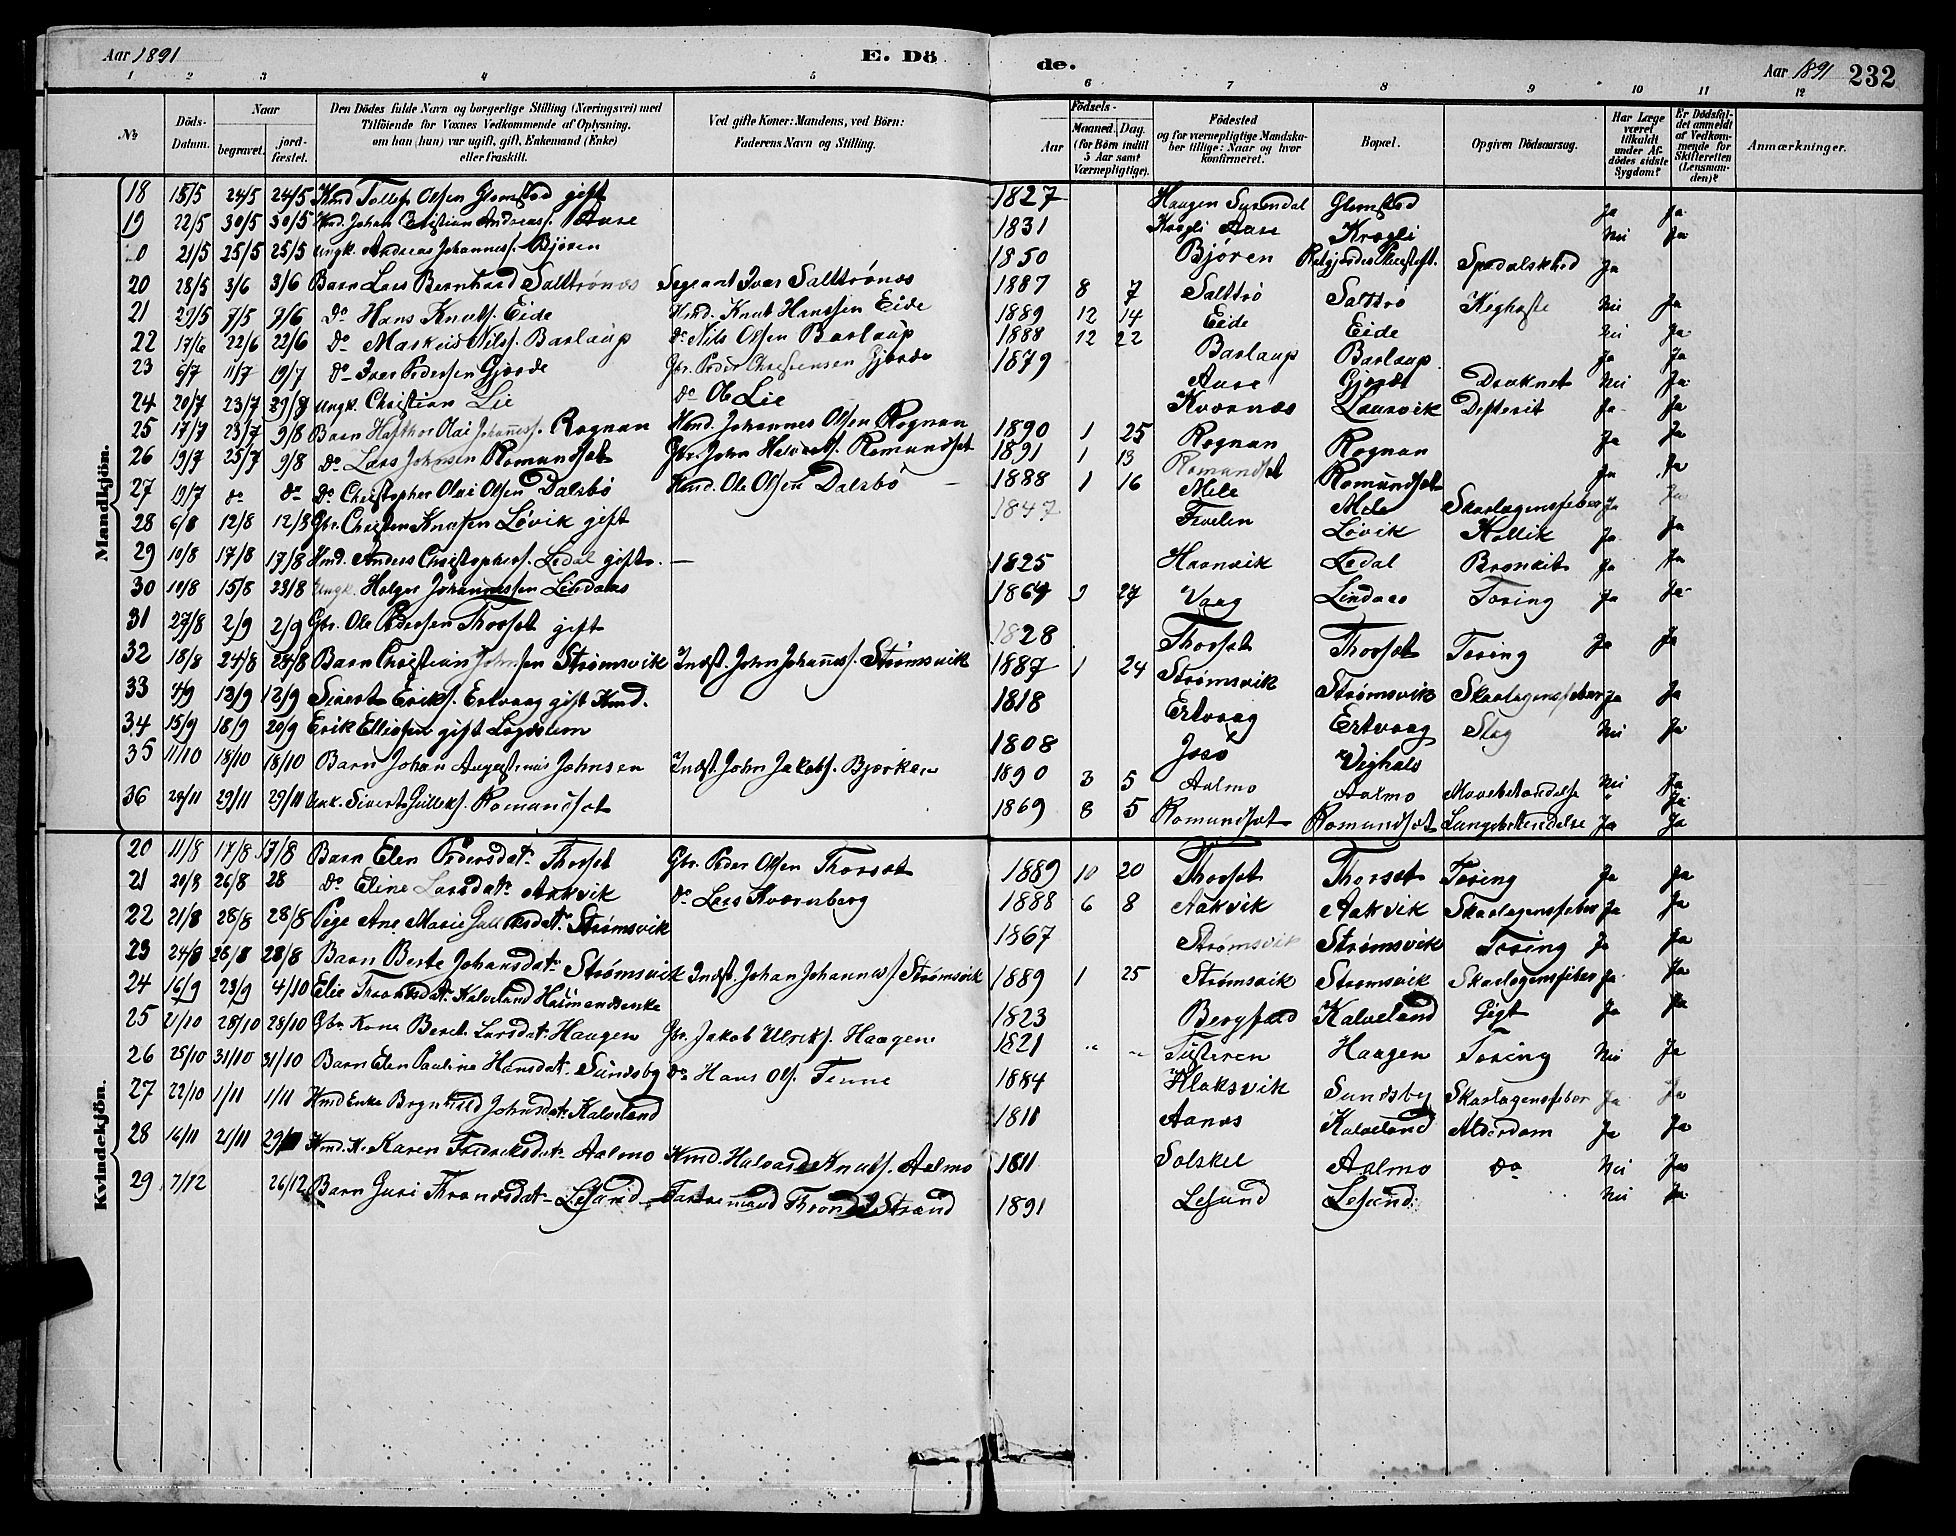 Aar 1891
E. Dö
de.
Aar 1891 232
1 2 3 4 5 6 7 8 9 10 11 12
№
Döds-Datum.
Naar
begravet.
jord-fæstet.
Den Dödes fulde Navn og borgerlige Stilling (Næringsvei) med
Tilföiende for Voxnes Vedkommende af Oplysning,
om han (hun) var ugift, gift, Enkemand (Enke)
eller fraskilt.
Ved gifte Koner: Mandens, ved Börn:
Faderens Navn og Stilling.
Födsels-
Aar
Maaned. Dag.
(for Börn indtil
5 Aar samt
Værnepligtige).
Födested
og for værnepligtige Mandska-
ber tillige: Naar og hvor
konfirmeret.
Bopæl.
Opgiven Dödsaarsag.
Har Læge
været
tilkaldt
under Af-
dödes sidste
Sygdom?
Er Dödsfal-
det anmeldt
af Vedkom-
mende for
Skifteretten
(Lensman-
den)?
Anmærkninger.
Mandkjön.
18 15/5 24/5 24/5 Kmd. Tollef Olsen Glemstad gift 1827 Haagen Surendal Glemstad Ja Ja
19 22/5 30/5 30/5 Kmd. Johan Christian Andreass. Aase 1831 Aase Nei Ja
0 21/5 25/5 25/5 Ungk. Andreas Johanness. Bjøren 1850 Bjøren Spedalskhed Ja
20 28/5 3/6 3/6 Barn Lars Bernhard Salttrønes Sergeant Iver Salttrønes 1887 8 7 Salttrø Salttrø Kighoste Nei Ja
21 29/5 7/5 7/6 Do Hans Knuts. Eide Kmd. Knut Hanssen Eide 1889 12 14 Eide Eide Nei Ja
22 17/6 22/6 22/6 Do Nils. Barlaup Do Nils Olsen Barlaup 1888 12 22 Barlaup Barlaup Ja Ja
23 6/7 11/7 19/7 Do Iver Pedersen Gjøede Gbr. Peder Christensen Gjøede 1879 Aase Druknet Nei Ja
24 20/7 23/7 Ungk. Christian Lie Do Ole Lie Kvernes Laurvik Ja Ja
25 17/7 23/7 9/8 Barn Hafthor Olai Johanness. Rognan Kmd. Johannes Olsen Rognan 1890 1 25 Rognan Rognan Ja Ja
26 19/7 25/7 9/8 Do Lars Johnsen Romundset Gbr. John Halvors. Romundset 1891 1 13 Romundset Romundset Ja Ja
27 19/7 do do Do Christopher Olai Olsen Dalsbø Kmd. Ole Olsen Dalsbø 1888 1 16 Mele Mele Skarlagensfeber Ja Ja
28 6/8 12/8 12/8 Gbr. Christen Knutsen Løvik gift 1847 Løvik Kollik Ja Ja
29 10/8 17/8 17/8 Kmd. Anders Christophers. Ledal gift. 1825 Ledal Bronkit Ja Ja
30 10/8 15/8 23/8 Ungk. Holger Johannessen Lindaas 27 Vaag Lindaas Tæring Ja Ja
31 27/8 2/9 2/9 Gbr. Ole Pedersen Thorset gift 1828 Thorset Thorset Tæring Ja Ja
32 18/8 24/8 24/8 Barn Christian Johnsen Strømsvik Indst. John Johanness. Strømsvik 1887 1 24 Strømsvik Strømsvik Skarlagensfeber Ja Ja
33 4/9 12/9 12/9 Sivert Eriks. Ertvaag gift Kmd. 1818 Ertvaag Ertvaag Slag Nei Ja
34 15/9 18/9 20/9 Erik Ellissen gift Lægdslem 1808
35 11/10 18/10 18/10 Barn Johan Augustinus Johnsen Indst. John Jakobs. Bjerken 1890 3 5 Aalmo Aalmo Mavebetændelse Nei Ja
36 24/11 29/11 29/11 Unk. Sivert Gulleks. Romundset 1869 8 5 Romundset Romundset Lungebetendelse Ja Ja
Kvindekjön.
20 11/8 17/8 17/8 Barn Elen Pedersdat. Thorset Gbr. Peder Olsen Thorset 1889 10 20 Thorset Thorset Tæring Ja Ja
21 20/8 26/8 28 Do Eline Larsdat. Aakvik Do Lars Kvernberg 1888 6 8 Aakvik Aakvik Skarlagensfeber Ja Ja
22 21/8 28/8 28/8 Pige Ane Marie Gulleksdat. Strømsvik 1867 Strømsvik Strømsvik Tæring Ja Ja
23 24/8 28/8 28/8 Barn Berte Johansdat. Strømsvik Indst. Johan Johanness. Strømsvik 1889 1 25 Strømsvik Strømsvik Skarlagensfeber Ja Ja
24 16/9 23/9 4/10 Elie Trondsdat. Kalveland 1823 Kalveland Gigt Ja Ja
25 21/10 28/10 28/10 Gbr. Kone Beret Larsdat. Haagen Gbr. Jakob Ulriks. Haagen 1821 " " Tusteren Haagen Tæring Nei Ja
26 25/10 31/10 31/10 Barn Elen Pauline Hansdat. Sundsby Do Hans Ols. 1884 Klaksvik Sundsby Skarlagensfeber Ja Ja
27 22/10 1/11 1/11 Kmd Enke Brynhild Johnsdat. Kalveland 1811 Aanes Kalveland Alderdom Ja Ja
28 14/11 21/11 Kmd. K. Karen Fredriksdat. Aalmo Kmd. Halvard Knuts. Aalmo 1811 Solskel Aalmo Do Nei Ja
29 7/12 26/12 Barn Guri Throndsdat. Lesund Trond Strand 1891 Lesund Lesund Nei Ja